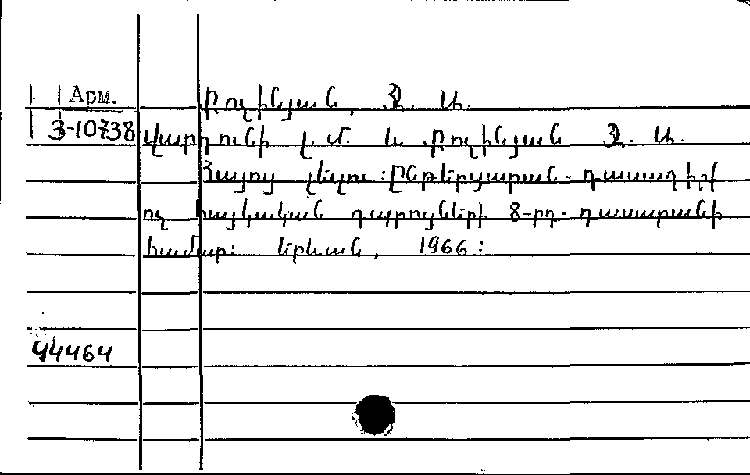 Арм.
Քոչինյան, Ջ. Ա.
3-10738 Վարդունի Լ. Մ. և Քոչինյան Ջ. Ա.
Հայոց լեզու: Ընթերցարան-դասագիրք
ոչ հայկական դպրոցների 8-րդ դասարանի
համար: Երևան, 1966:
44464